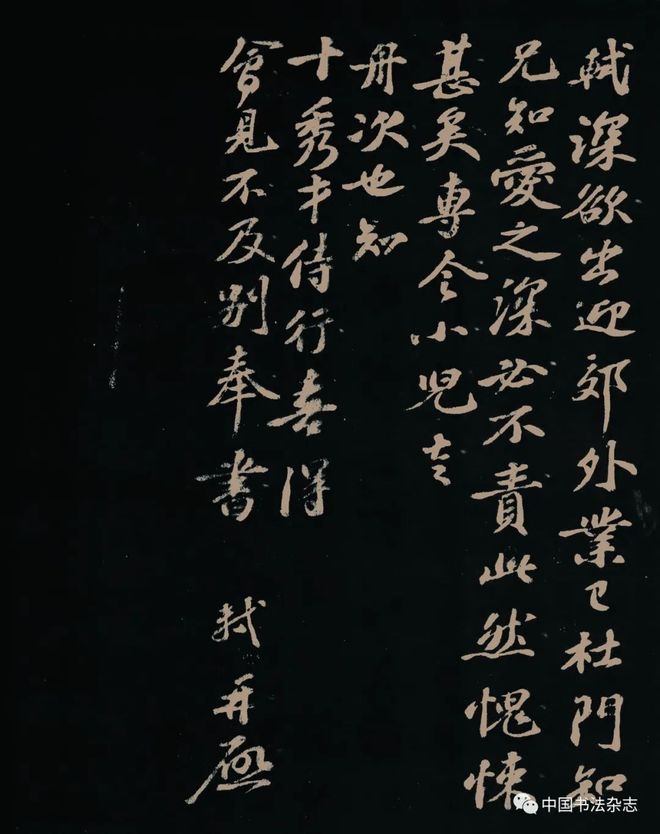 軾深欲出迎郊外業已杜門知
兄知愛之深必不責此然愧悚
甚矣專令小兒走
舟次也知
十秀才侍行喜得
會見不及別奉書 軾再啟
中国书法杂志